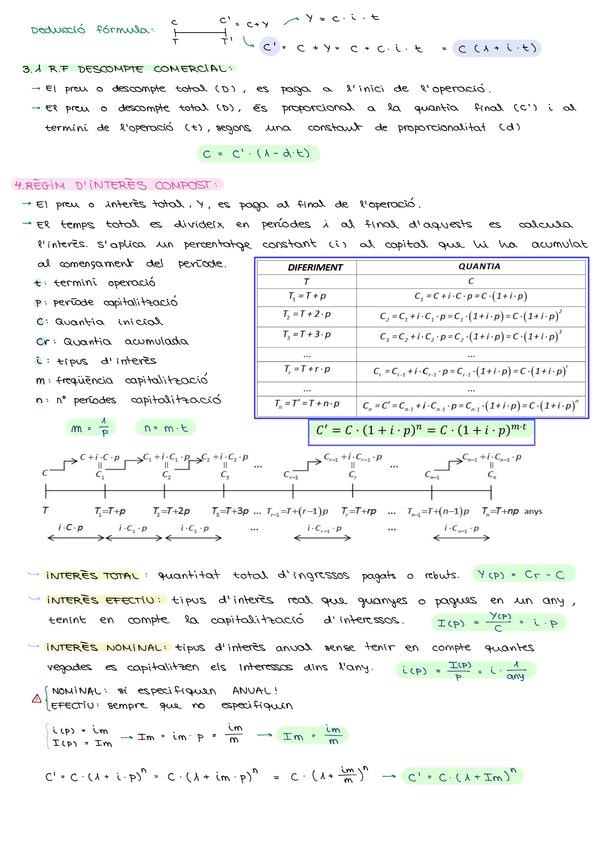 Deducció fórmula: C C' = C+Y Y = C · i · t
T T' C' = C + Y = C + C · i · t = C (1 + i · t)
3.1 R.F DESCOMPTE COMERCIAL:
→ El preu o descompte total (D), es paga a l'inici de l'operació.
→ El preu o descompte total (D), és proporcional a la quantia final (C') i al
termini de l'operació (t), segons una constant de proporcionalitat (d)
C = C' · (1 - d · t)
4. RÈGIM D'INTERÈS COMPOST:
→ El preu o interès total, Y, es paga al final de l'operació.
→ El temps total es divideix en períodes i al final d'aquests es calcula
l'interès. S'aplica un percentatge constant (i) al capital que hi ha acumulat
al començament del període.
t: termini operació
p: període capitalització
C: Quantia inicial
Cr: Quantia acumulada
i: tipus d'interès
m: freqüència capitalització
n: nº períodes capitalització
m = 1/p n = m · t
DIFERIMENT QUANTIA
T C
T₁ = T + p C₁ = C + i · C · p = C · (1 + i · p)
T₂ = T + 2 · p C₂ = C₁ + i · C₁ · p = C₁ · (1 + i · p) = C · (1 + i · p)²
T₃ = T + 3 · p C₃ = C₂ + i · C₂ · p = C₂ · (1 + i · p) = C · (1 + i · p)³
... ...
Tᵣ = T + r · p Cᵣ = Cᵣ₋₁ + i · Cᵣ₋₁ · p = Cᵣ₋₁ · (1 + i · p) = C · (1 + i · p)ʳ
... ...
Tₙ = T' = T + n · p Cₙ = C' = Cₙ₋₁ + i · Cₙ₋₁ · p = Cₙ₋₁ · (1 + i · p) = C · (1 + i · p)ⁿ
C' = C · (1 + i · p)ⁿ = C · (1 + i · p)^(m·t)
C + i · C · p C₁ + i · C₁ · p C₂ + i · C₂ · p ... Cᵣ₋₁ + i · Cᵣ₋₁ · p Cₙ₋₁ + i · Cₙ₋₁ · p
C C₁ C₂ C₃ Cᵣ₋₁ Cᵣ Cₙ₋₁ Cₙ
T T₁=T+p T₂=T+2p T₃=T+3p ... Tᵣ₋₁=T+(r−1)p Tᵣ=T+rp ... Tₙ₋₁=T+(n−1)p Tₙ=T+np anys
i · C · p i · C₁ · p i · C₂ · p ... i · Cᵣ₋₁ · p ... i · Cₙ₋₁ · p
INTERÈS TOTAL: quantitat total d'ingressos pagats o rebuts. Y(p) = Cr - C
INTERÈS EFECTIU: tipus d'interès real que guanyes o pagues en un any,
tenint en compte la capitalització d'interessos. I(p) = Y(p)/C = i · p
INTERÈS NOMINAL: tipus d'interès anual sense tenir en compte quantes
vegades es capitalitzen els interessos dins l'any. i(p) = I(p)/p = i · 1/any
NOMINAL: si especifiquen ANUAL!
EFECTIU: sempre que no especifiquin
i(p) = im
I(p) = Im → Im = im · p = im/m → Im = im/m
C' = C · (1 + i · p)ⁿ = C · (1 + im · p)ⁿ = C · (1 + im/m)ⁿ → C' = C · (1 + Im)ⁿ